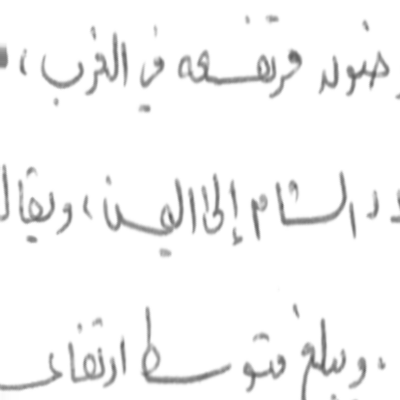 مرتفعه في الغرب،
الشام إلى اليمن، ويقال
. ويبلغ متوسط ارتفاع